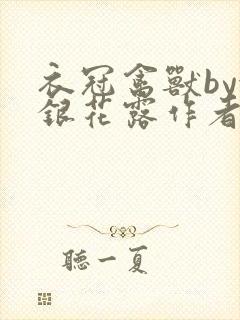 衣冠禽獸by
銀花露作者
聽一夏